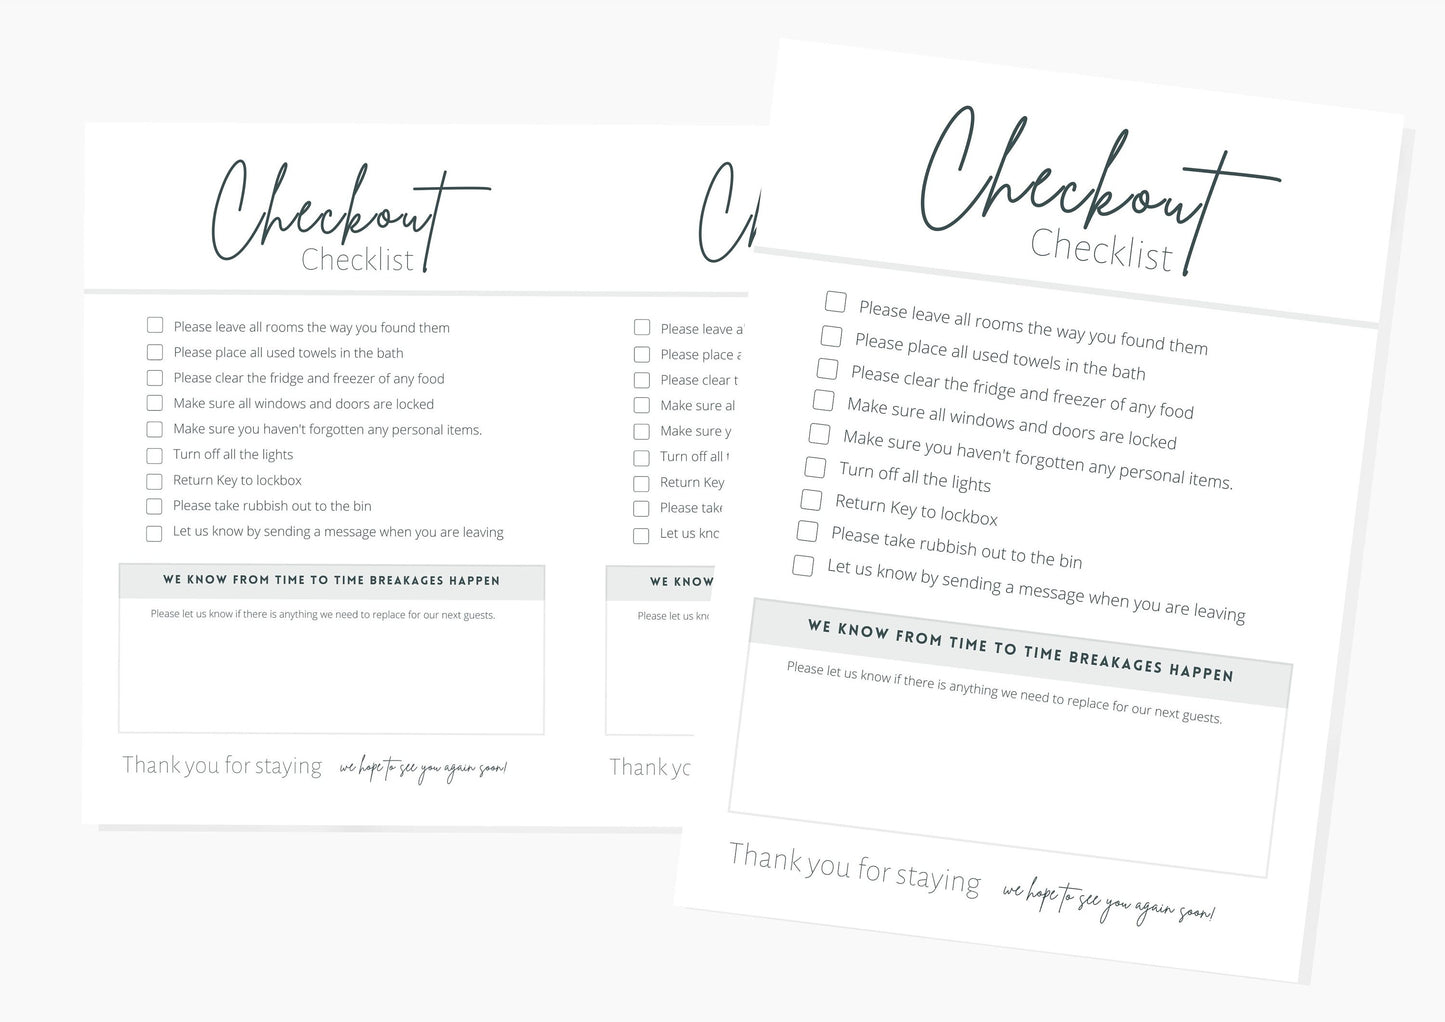 Checkout
Checklist
Please leave all rooms the way you found them
Please place all used towels in the bath
Please clear the fridge and freezer of any food
Make sure all windows and doors are locked
Make sure you haven't forgotten any personal items.
Turn off all the lights
Return Key to lockbox
Please take rubbish out to the bin
Let us know by sending a message when you are leaving
WE KNOW FROM TIME TO TIME BREAKAGES HAPPEN
Please let us know if there is anything we need to replace for our next guests.
Thank you for staying we hope to see you again soon!
Ch
Please leave a
Please place a
Please clear t
Make sure al
Make sure y
Turn off all
Return Key
Please take
Let us knc
WE KNOW
Please let us knc
Thank yc
Checkout
Checklist
Please leave all rooms the way you found them
Please place all used towels in the bath
Please clear the fridge and freezer of any food
Make sure all windows and doors are locked
Make sure you haven't forgotten any personal items.
Turn off all the lights
Return Key to lockbox
Please take rubbish out to the bin
Let us know by sending a message when you are leaving
WE KNOW FROM TIME TO TIME BREAKAGES HAPPEN
Please let us know if there is anything we need to replace for our next guests.
Thank you for staying we hope to see you again soon!